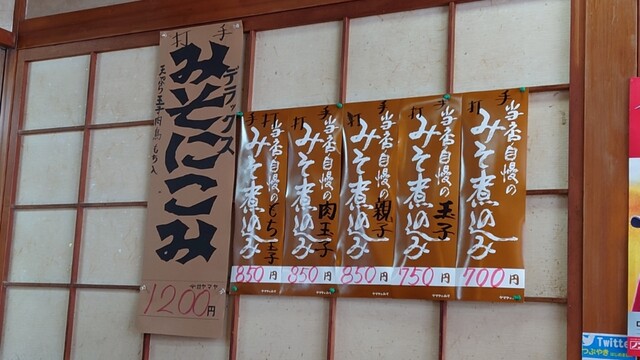 手打
デラックス
みそにこみ
天ぷら玉子肉鳥もち入
1200円
手打
当店自慢の
みそ煮込み
700円
手打
当店自慢の
みそ煮込み
玉子
750円
手打
当店自慢の
みそ煮込み
親子
850円
手打
当店自慢の
みそ煮込み
肉玉子
850円
手打
当店自慢の
みそ煮込み
もち玉子
850円
Twitte
つぶやき